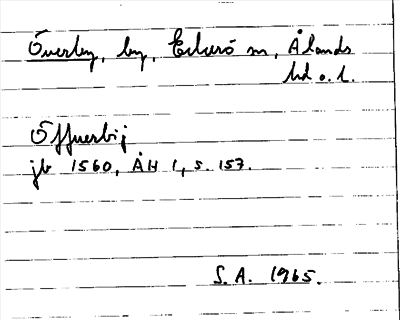 Överby, by, Eckerö sn, Ålands
hd o. l.
Öffuerbij
jb 1560, ÅH 1, s. 157.
S. A. 1965.